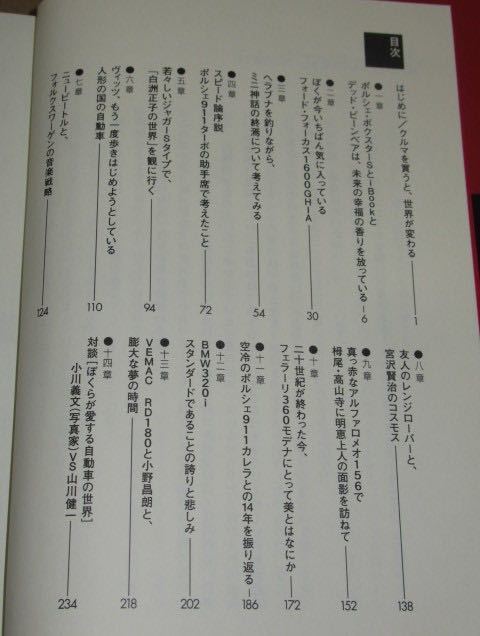 目次
はじめに／クルマを買うと、世界が変わる——1
●一章
ポルシェ・ボクスターSとiBookと
デッド・ビーンベアは、未来の幸福の香りを放っている—6
●二章
ぼくが今いちばん気に入っている
フォード・フォーカス1600GHIA——30
●三章
ヘラブナを釣りながら、
ミニ神話の終焉について考えてみる——54
●四章
スピード論序説
ポルシェ911ターボの助手席で考えたこと——72
●五章
若々しいジャガーSタイプで、
「白洲正子の世界」を観に行く——94
●六章
ヴィッツ、もう一度歩きはじめようとしている
人形の国の自動車——110
●七章
ニュービートルと、
フォルクスワーゲンの音楽戦略——124
●八章
友人のレンジローバーと、
宮沢賢治のコスモス——138
●九章
真っ赤なアルファロメオ156で
栂尾・高山寺に明恵上人の面影を訪ねて——152
●十章
二十世紀が終わった今、
フェラーリ360モデナにとって美とはなにか——172
●十一章
空冷のポルシェ911カレラとの14年を振り返る—186
●十二章
BMW320i
スタンダードであることの誇りと悲しみ——202
●十三章
VEMAC RD180と小野昌朗と、
膨大な夢の時間——218
●十四章
対談［ぼくらが愛する自動車の世界］
小川義文（写真家）VS山川健一——234